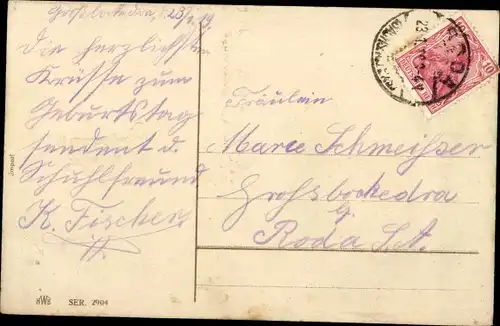 Großbockedra, 23/1. 19
Die herzlichsten
Grüsse zum
Geburtstag
sendent d.
Schuhlfreund
K. Fischer
Fräulein
Marie Schmeisser
Großbockedra
b.
Roda S.A.
RODA
23.1.
10
Import
HWB SER. 2904